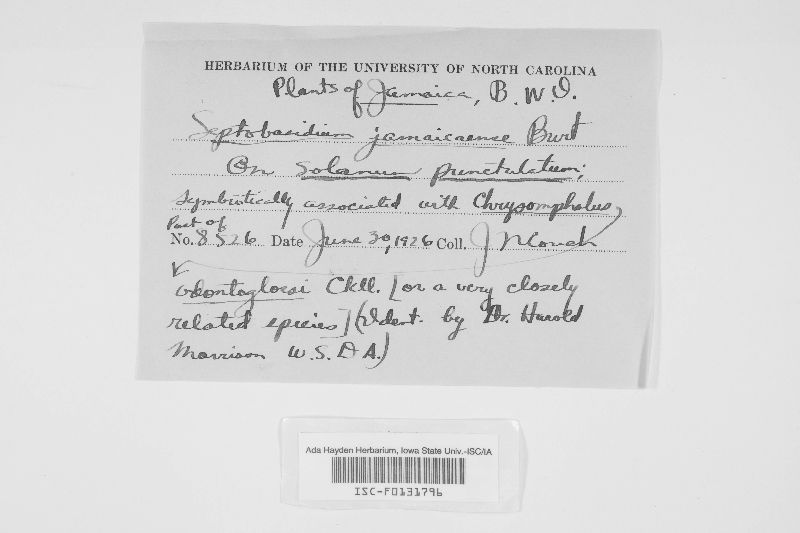 HERBARIUM OF THE UNIVERSITY OF NORTH CAROLINA
Plants of Jamaica, B.W.I.
Septobasidium jamaicaense Burt
On Solanum punctulatum;
symbiotically associated with Chrysomphalus
Part of
No. 8526 Date June 30, 1926 Coll. J N Couch
odontoglossi Ckll. [or a very closely
related species] (Ident. by Dr. Harold
Morrison U.S.D.A.)
Ada Hayden Herbarium, Iowa State Univ.-ISC/IA
ISC-F0131796